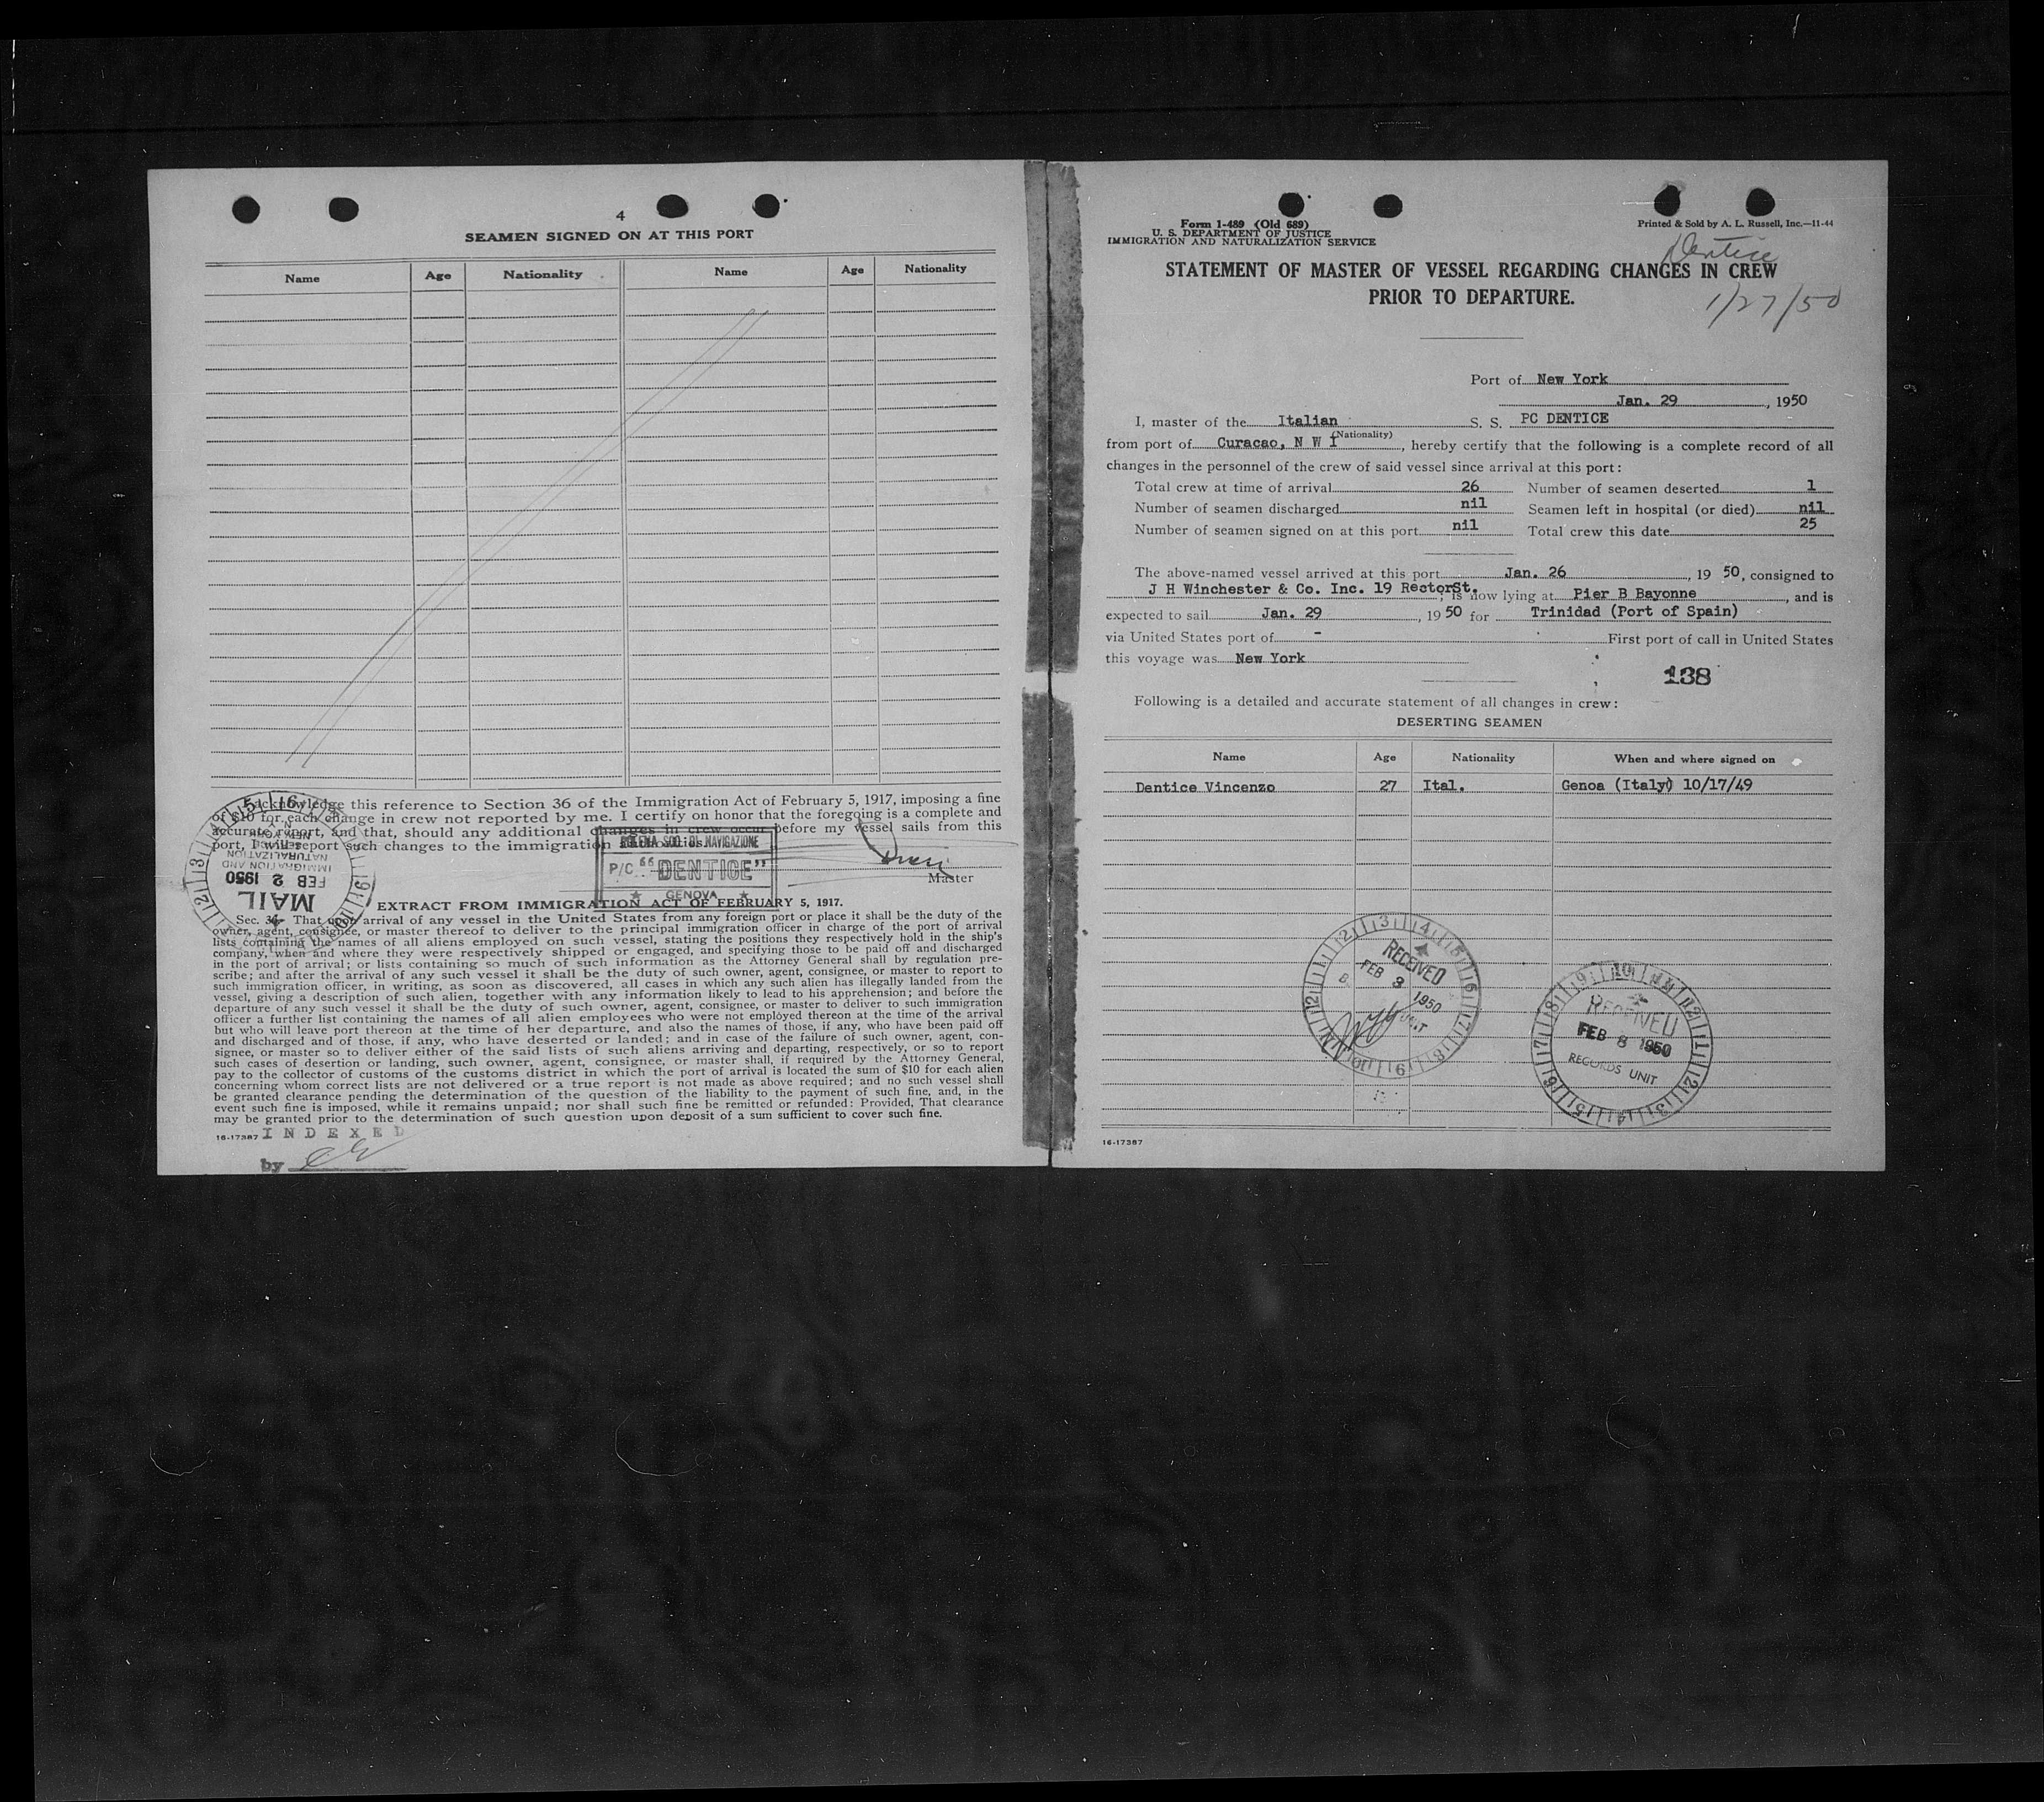 4
SEAMEN SIGNED ON AT THIS PORT
Name Age Nationality Name Age Nationality
I acknowledge this reference to Section 36 of the Immigration Act of February 5, 1917, imposing a fine
of $10 for each change in crew not reported by me. I certify on honor that the foregoing is a complete and
accurate report, and that, should any additional changes in crew occur before my vessel sails from this
port, I will report such changes to the immigration authorities.
SOC. DI NAVIGAZIONE
P/C. "DENTICE"
GENOVA
Master
MAIL
FEB 2 1950
IMMIGRATION AND
NATURALIZATION
SERVICE
NEW YORK
N. Y.
EXTRACT FROM IMMIGRATION ACT OF FEBRUARY 5, 1917.
Sec. 36. That upon arrival of any vessel in the United States from any foreign port or place it shall be the duty of the
owner, agent, consignee, or master thereof to deliver to the principal immigration officer in charge of the port of arrival
lists containing the names of all aliens employed on such vessel, stating the positions they respectively hold in the ship's
company, when and where they were respectively shipped or engaged, and specifying those to be paid off and discharged
in the port of arrival; or lists containing so much of such information as the Attorney General shall by regulation pre-
scribe; and after the arrival of any such vessel it shall be the duty of such owner, agent, consignee, or master to report to
such immigration officer, in writing, as soon as discovered, all cases in which any such alien has illegally landed from the
vessel, giving a description of such alien, together with any information likely to lead to his apprehension; and before the
departure of any such vessel it shall be the duty of such owner, agent, consignee, or master to deliver to such immigration
officer a further list containing the names of all alien employees who were not employed thereon at the time of the arrival
but who will leave port thereon at the time of her departure, and also the names of those, if any, who have been paid off
and discharged and of those, if any, who have deserted or landed; and in case of the failure of such owner, agent, con-
signee, or master so to deliver either of the said lists of such aliens arriving and departing, respectively, or so to report
such cases of desertion or landing, such owner, agent, consignee, or master shall, if required by the Attorney General,
pay to the collector of customs of the customs district in which the port of arrival is located the sum of $10 for each alien
concerning whom correct lists are not delivered or a true report is not made as above required; and no such vessel shall
be granted clearance pending the determination of the question of the liability to the payment of such fine, and, in the
event such fine is imposed, while it remains unpaid; nor shall such fine be remitted or refunded: Provided, That clearance
may be granted prior to the determination of such question upon deposit of a sum sufficient to cover such fine.
16-17387 INDEXED
by
Form 1-489 (Old 689)
U. S. DEPARTMENT OF JUSTICE
IMMIGRATION AND NATURALIZATION SERVICE
Printed & Sold by A. L. Russell, Inc.—11-44
Dentice
STATEMENT OF MASTER OF VESSEL REGARDING CHANGES IN CREW
PRIOR TO DEPARTURE.
1/27/50
Port of New York
Jan. 29, 1950
I, master of the Italian S. S. PC DENTICE
(Nationality)
from port of Curacao, N W I, hereby certify that the following is a complete record of all
changes in the personnel of the crew of said vessel since arrival at this port:
Total crew at time of arrival 26 Number of seamen deserted 1
Number of seamen discharged nil Seamen left in hospital (or died) nil
Number of seamen signed on at this port nil Total crew this date 25
The above-named vessel arrived at this port Jan. 26, 19 50, consigned to
J H Winchester & Co. Inc. 19 RectorSt., is now lying at Pier B Bayonne, and is
expected to sail Jan. 29, 19 50 for Trinidad (Port of Spain)
via United States port of - First port of call in United States
this voyage was New York
138
Following is a detailed and accurate statement of all changes in crew:
DESERTING SEAMEN
Name Age Nationality When and where signed on
Dentice Vincenzo 27 Ital. Genoa (Italy) 10/17/49
RECEIVED
FEB 3 1950
UNIT
RECEIVED
FEB 8 1950
RECORDS UNIT
16-17387